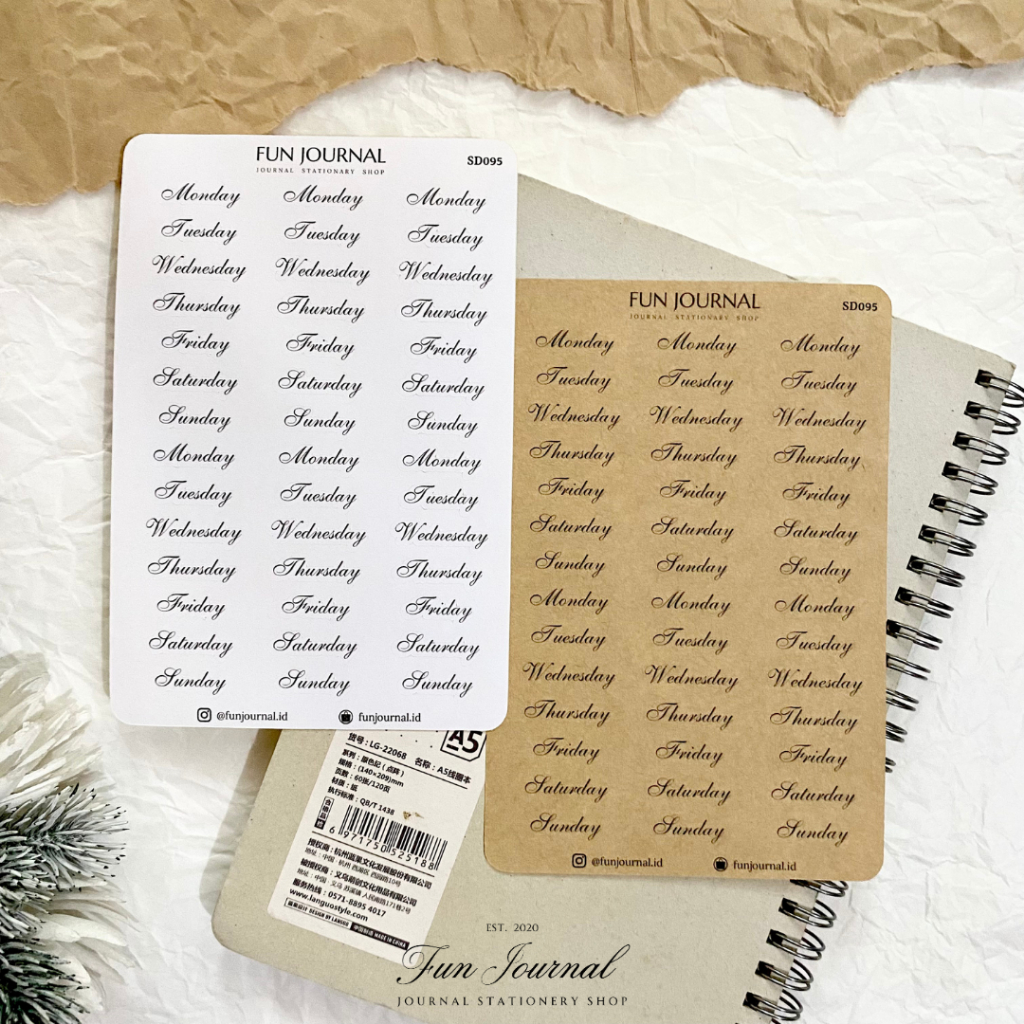 FUN JOURNAL
JOURNAL STATIONARY SHOP
SD095
Monday Monday Monday
Tuesday Tuesday Tuesday
Wednesday Wednesday Wednesday
Thursday Thursday Thursday
Friday Friday Friday
Saturday Saturday Saturday
Sunday Sunday Sunday
Monday Monday Monday
Tuesday Tuesday Tuesday
Wednesday Wednesday Wednesday
Thursday Thursday Thursday
Friday Friday Friday
Saturday Saturday Saturday
Sunday Sunday Sunday
@funjournal.id funjournal.id
FUN JOURNAL
JOURNAL STATIONARY SHOP
SD095
Monday Monday Monday
Tuesday Tuesday Tuesday
Wednesday Wednesday Wednesday
Thursday Thursday Thursday
Friday Friday Friday
Saturday Saturday Saturday
Sunday Sunday Sunday
Monday Monday Monday
Tuesday Tuesday Tuesday
Wednesday Wednesday Wednesday
Thursday Thursday Thursday
Friday Friday Friday
Saturday Saturday Saturday
Sunday Sunday Sunday
@funjournal.id funjournal.id
A5
货号：LG-22068 名称：A5线圈本
规格：(140×209)mm
页数：60张/120页
执行标准：QB/T 1438
合格品
6 971750 525188
授权商：杭州蓝果文化发展股份有限公司
地址：中国·杭州
被授权商：义乌前创文化用品有限公司
服务热线：0571-8895 4017
www.languostyle.com
DESIGN BY LANGUO
MADE IN CHINA
EST. 2020
Fun Journal
JOURNAL STATIONERY SHOP